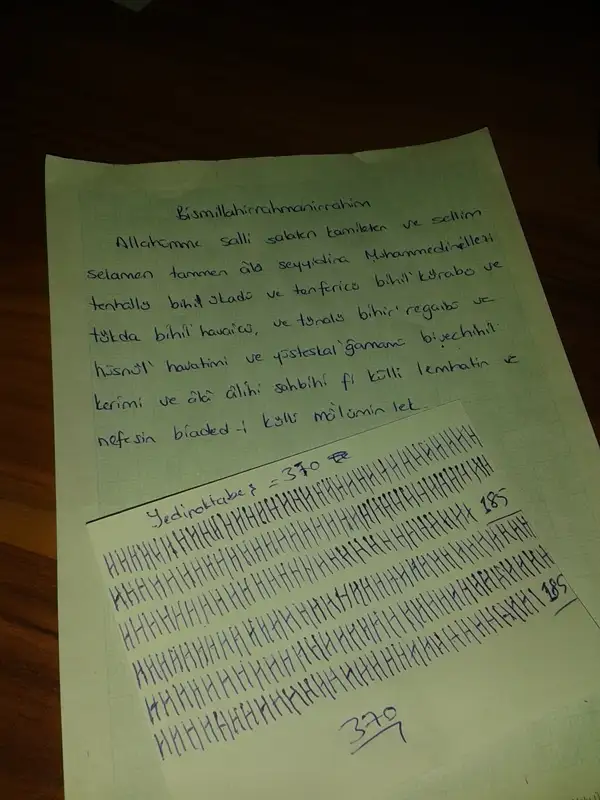 Bismillahirrahmanirrahim
Allahümme salli salaten kamileten ve sellim
selamen tammen âla seyyidina Muhammedinillezi
tenhallü bihil ukadü ve tenfericü bihil' kürabü ve
tükda bihil' havaicü, ve tünalü bihir' regaibü ve
hüsnül' havatimi ve yüsteskal' ğamamü bivechihil
kerimi ve âlâ âlihi sahbihi fi külli lemhatin ve
nefesin biaded-i külli mâlumin lek.
= 370
185
185
370